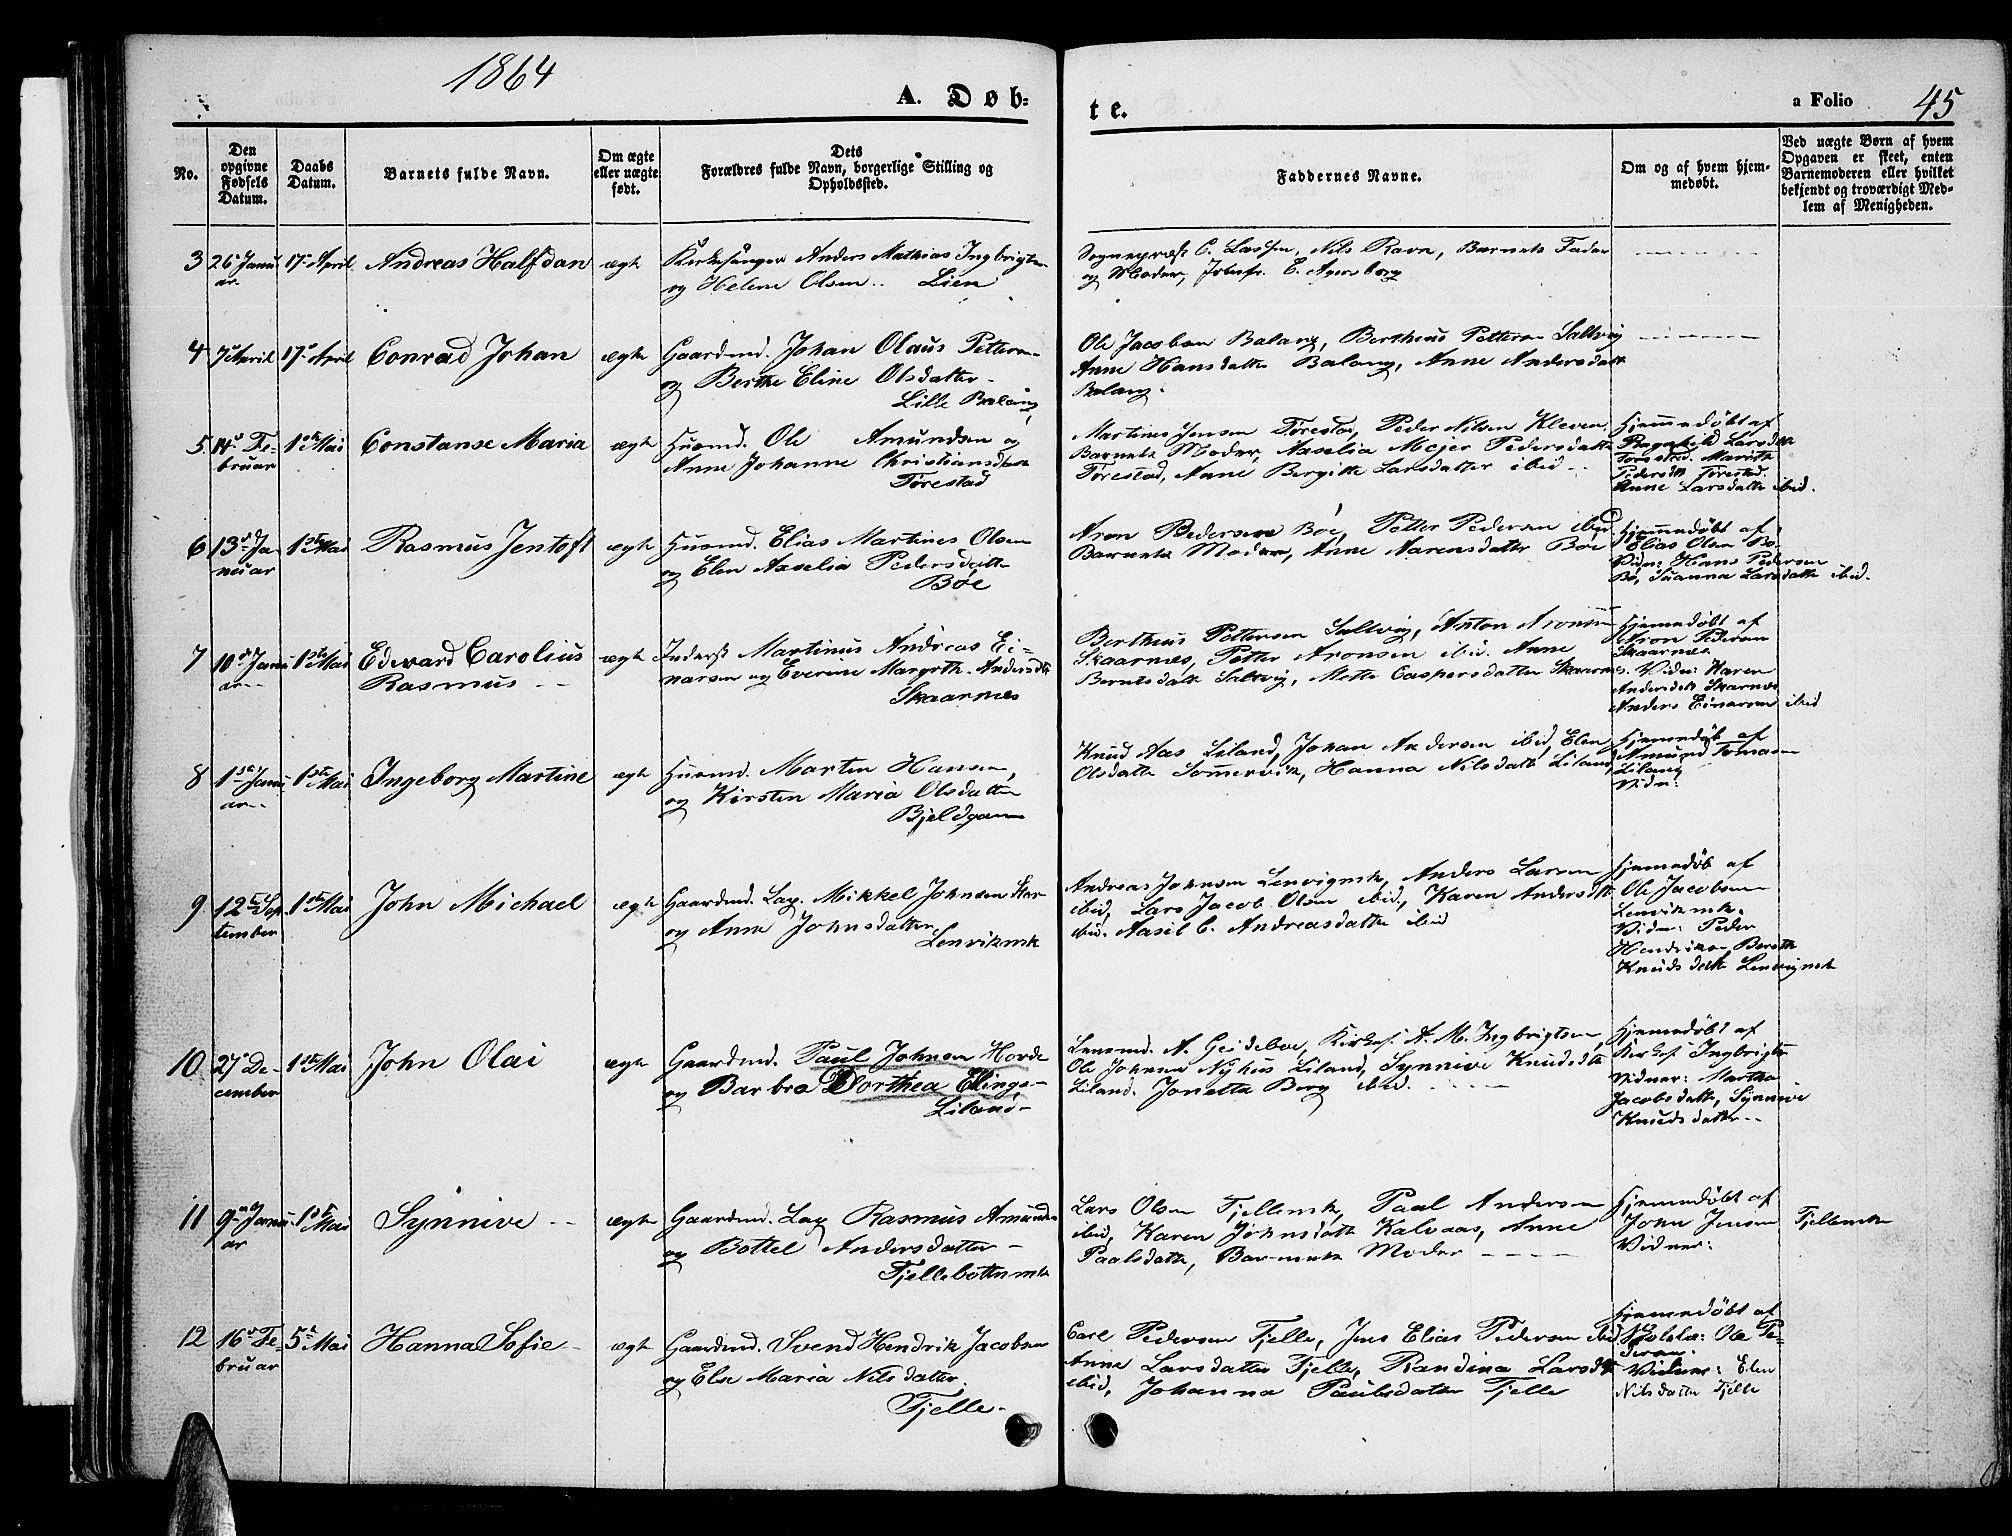 1864
A. Døb-
te.
a Folio 45
No.
Den
opgivne
Fødsels
Datum.
Daabs
Datum.
Barnets fulde Navn.
Om ægte
eller uægte
født.
Dets
Forældres fulde Navn, borgerlige Stilling og
Opholdssted.
Faddernes Navne.
Om og af hvem hjem-
medøbt.
Ved uægte Børn af hvem
Opgaven er skeet, enten
Barnemoderen eller hvilket
bekjendt og troværdigt Med-
lem af Menigheden.
3 26 Janu
ar
17 April
Andreas Halfdan
ægte
Kirkesanger Anders Mathias Ingbrigts-
og Helene Olsen Lien
Sognepræst C. Lassen, Nils Ravn, Barnets Fader
og Moder, Jomfr. C. Agersborg
4 7 April
17 April
Conrad Johan
ægte
Gaardmd. Johan Olaus Petters-
og Berthe Eline Olsdatter
Lille Balang
Ole Jacobsen Balang, Bertheus Pettersen Saltvig
Anne Hansdatter Balang, Anne Andersdatt
Balang.
5 14 Fe-
bruar
1ste Mai
Constanse Maria
ægte
Huusmd. Ole Amundsen og
Anne Johanne Christiansdatt
Tørestad
Martines Jensen Tørestad, Peder Nilsen Kleven
Barnets Moder, Aaselia Mejer Pedersdatt
Tørestad, Anne Bergitte Larsdatter ibid
Hjemmedøbt af
Ragnhild Larsdtr
Tørestad. Marith
Pedersdtr Tørestad.
Anne Larsdatter ibid.
6 13 Ja-
nuar
1ste Mai
Rasmus Jentoft
ægte
Huusmd. Elias Martines Olsen
og Elen Aaselia Pedersdatter
Bøe
Aron Pedersen Bøe, Petter Pedersen ibid
Barnets Moder, Anne Aarensdatter Bøe
Hjemmedøbt af
Elias Olsen Bø.
Vidn: Hans Pedersen
Bø, Susanna Larsdatter ibid.
7 10 Janu
ar
1ste Mai
Edevard Carolius
Rasmus
ægte
Inderst Martinus Andreas Ei-
narsen og Everine Margrth. Andersdtr
Skaarnes
Bertheus Pettersen Saltvig, Anton Aronsen
Skaarnes, Petter Aronsen ibid. Anne
Berntsdatt Saltvig, Mette Caspersdatter Skaarnes.
Hjemmedøbt af
Aron Pedersen
Skaarnes
Vidn: Karen
Andersdtr Skarnes
Anders Einarsen ibid
8 1ste Janu
ar
1ste Mai
Ingeborg Martine
ægte
Huusmd. Morten Hansen,
og Kirsten Maria Olsdatter
Bjeldgam
Knud Aas Liland, Johan Andersen ibid, Elen
Olsdatter Sommervik, Hanna Nilsdatter Liland
Hjemmedøbt af
Amund Tomasen
Liland
Vidn:
9 12te Sep
tember
1ste Mai
John Michael
ægte
Gaardmd. Lap. Mikkel Johnsen
og Anne Johnsdatter
Lenvikmk
Andreas Johnsen Lenvigmk, Anders Larsen
ibid, Lars Jacob Olsen ibid, Karen Andersdtr
ibid. Aasil C. Andreasdatter ibid
Hjemmedøb af
Ole Jacobsen
Lenvikmk.
Vidn: Peder
Hendriksen Bereth
Knudsdatt Lenvigmk
10 27 De-
cember
1ste Mai
John Olai
ægte
Gaardmd. Paul Johnsen Horde
og Barbra Dorthea Elings-
Liland
Lensmd. A. Geidebøe, Kirkes. A. M. Ingbrigtsen,
Ole Johnsen Nyhus Liland, Synnive Knudsdtr
Liland. Jonetta Berg ibid.
Hjemmedøbt af
Kirkes. Ingbrigtsen
Vidner: Martha
Jacobsdatter, Synnive
Knudsdatter
11 9 Janu
ar
1ste Mai
Synnive
ægte
Gaardmd. Lap Rasmus Amundsen
og Bottel Andersdatter
Fjellebottnmk
Lars Olsen Fjellemk, Paal Andersen
ibid, Karen Johnsdatt Kalvaas, Anne
Paalsdatter, Barnets Moder
Hjemmedøbt af
John Jensen Fjellemk
Vidner:
12 16 Fe-
bruar
5 Mai
Hanna Sofie
ægte
Gaardmd. Svend Hendrik Jacobsen
og Else Maria Nilsdatter.
Fjelle.
Carl Pedersen Fjelle, Jens Elias Pedersen ibid
Anne Larsdatter Fjelle, Randina Larsdtr
ibid, Johanna Paulsdatter Fjelle
Hjemmedøbt af
Ole Pe-
dersen.
Vidner: Elen
Nilsdatter Fjelle